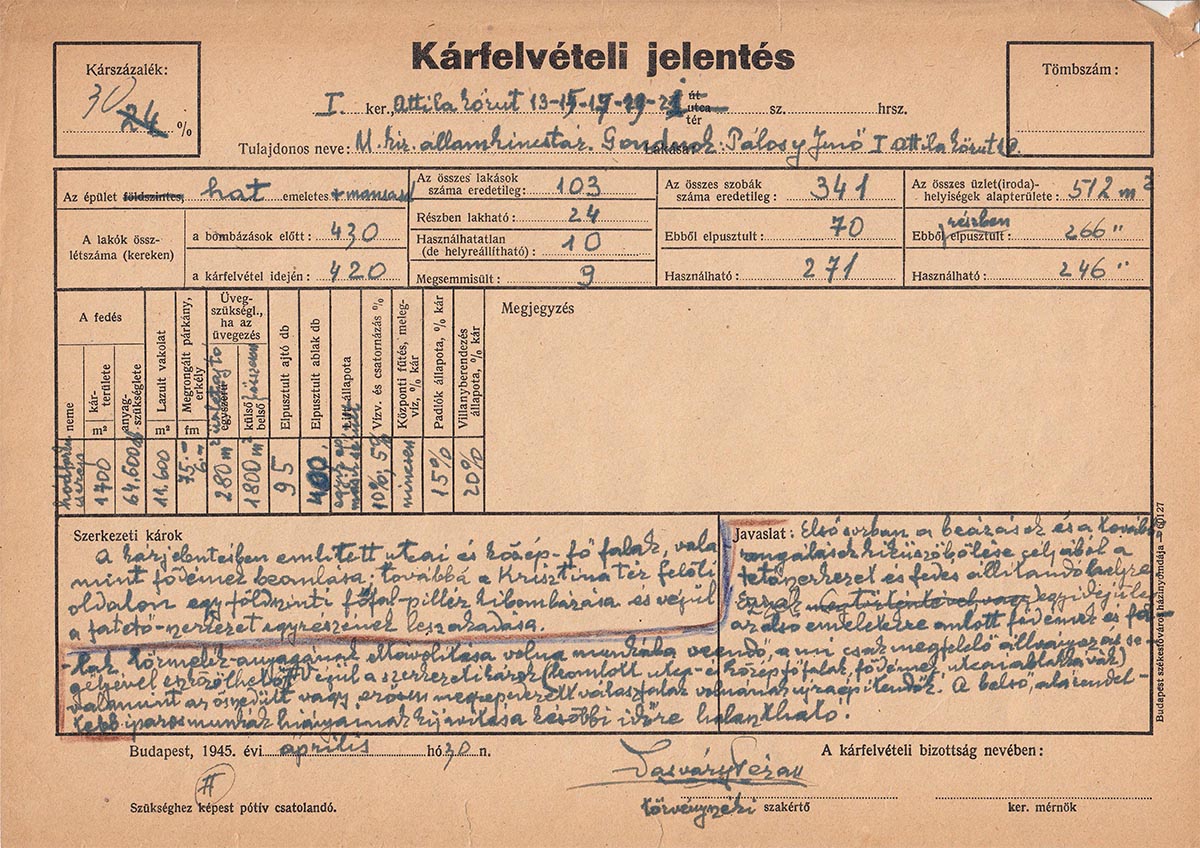 Kárfelvételi jelentés
Kárszázalék:
30
24 %
Tömbszám:
I. ker. Attila körút 13-15-17-19-21 út utca tér sz. hrsz.
Tulajdonos neve: M. kir. államkincstár. Gondnok: Lakása: Pálosy Jenő I Attila körút
Az épület földszintes, hat emeletes + mansard
A lakók összlétszáma (kereken)
a bombázások előtt: 430
a kárfelvétel idején: 420
Az összes lakások száma eredetileg: 103
Részben lakható: 24
Használhatatlan (de helyreállítható): 10
Megsemmisült: 9
Az összes szobák száma eredetileg: 341
Ebből elpusztult: 70
Használható: 271
Az összes üzlet(iroda)-helyiségek alapterülete: 512 m²
Ebből részben elpusztult: 266 "
Használható: 246 "
A fedés
neme hódfarkú cserép
kár-területe m² 1700
anyag-szükséglete 64.600 db
Lazult vakolat m² 11.600
Megrongált párkány, erkély fm 75.-
Üvegszükségl., ha az üvegezés
egyszerű 280 m²
külső belső összesen 1800 m²
Elpusztult ajtó db 95
Elpusztult ablak db 400
Lift állapota egyik ép másik sérült
Vízv. és csatornázás % 10%, 5%
Központi fűtés, meleg-víz, % kár nincsen
Padlók állapota, % kár 15%
Villanyberendezés állapota, % kár 20%
Megjegyzés
Szerkezeti károk
A kárjelentésben említett utcai és közép-fő falak, vala-
mint födémek beomlása; továbbá a Krisztina tér felőli
oldalon egy földszinti főfal-pillér kibombázása és végül
a fatető-szerkezet egy részének leszakadása.
Javaslat: Elsősorban a beázások és a további
rongálások kiküszöbölése céljából a
tetőszerkezet és fedés állítandó helyre.
Ezzel megtörténtével vagy egyidejűleg
az alsó emeletekre omlott födémek és fal-
lak törmelék-anyagának eltávolítása volna munkába veendő, a mi csak megfelelő állványozás se-
gélyével eszközölhető. Végül a szerkezeti károk (leomlott utca- és középfőfalak, födémek, utcai ablakkávák)
valamint az összedűlt vagy erősen megrepedezett válaszfalak volnának újraépítendők. A belső, alárendel-
tebb iparosmunkák hiányainak kijavítása későbbi időre halasztható.
Budapest, 1945. évi április hó 30 n.
II
Szükséghez képest pótív csatolandó.
törvényszéki szakértő
A kárfelvételi bizottság nevében:
ker. mérnök
Budapest székesfőváros házinyomdája